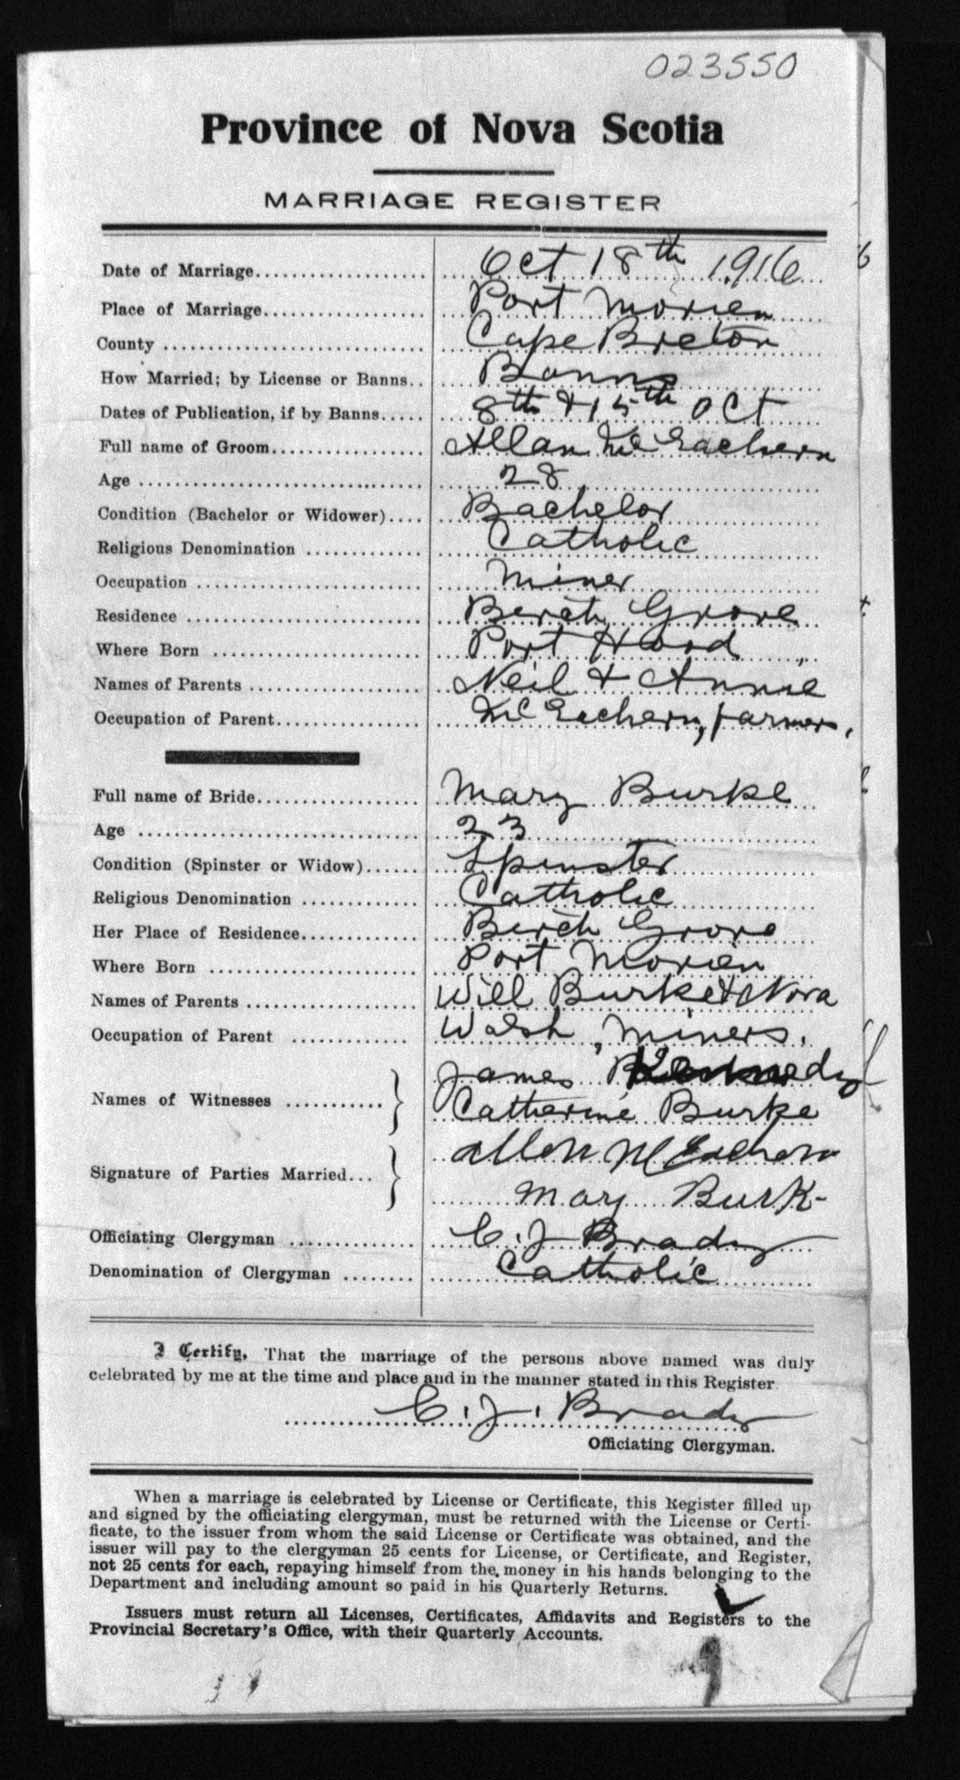 023550
Province of Nova Scotia
MARRIAGE REGISTER
Date of Marriage.................... Oct 18th 1916
Place of Marriage.................... Port Morien
County .................... Cape Breton
How Married; by License or Banns.. Banns
Dates of Publication, if by Banns..... 8th & 15th Oct
Full name of Groom.................... Allan McEachern
Age .................... 28
Condition (Bachelor or Widower).... Bachelor
Religious Denomination ............ Catholic
Occupation .................... Miner
Residence .................... Berch Grove
Where Born .................... Port Hood
Names of Parents .................... Neil & Annie
Occupation of Parent.................... McEachern, farmers.
Full name of Bride.................... Mary Burke
Age .................... 23
Condition (Spinster or Widow)...... Spinster
Religious Denomination ............ Catholic
Her Place of Residence............ Berch Grove
Where Born .................... Port Morien
Names of Parents .................... Will Burke & Nora
Occupation of Parent ............ Walsh, Miners.
James Kennedy
Names of Witnesses ...........
Catherine Burke
Allen McEachern
Signature of Parties Married...
Mary Burk-
Officiating Clergyman ............ C. J. Brady
Denomination of Clergyman ........ Catholic
I Certify, That the marriage of the persons above named was duly
celebrated by me at the time and place and in the manner stated in this Register
C. J. Brady
Officiating Clergyman.
When a marriage is celebrated by License or Certificate, this Register filled up
and signed by the officiating clergyman, must be returned with the License or Certi-
ficate, to the issuer from whom the said License or Certificate was obtained, and the
issuer will pay to the clergyman 25 cents for License, or Certificate, and Register,
not 25 cents for each, repaying himself from the money in his hands belonging to the
Department and including amount so paid in his Quarterly Returns.
Issuers must return all Licenses, Certificates, Affidavits and Registers to the
Provincial Secretary's Office, with their Quarterly Accounts.